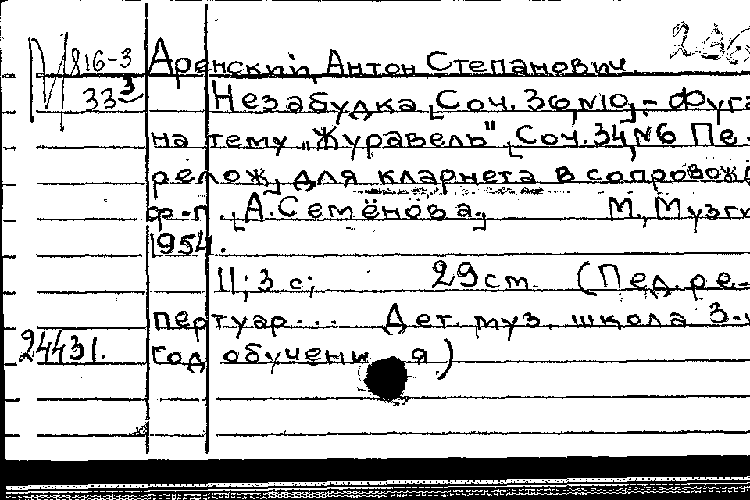 816-3 Аренский, Антон Степанович. 236
33³ Незабудка [Соч. 36, №10]. - Фуга
на тему „Журавель" [Соч. 34, №6 Пе-
релож.] для кларнета в сопровожд
ф.-п. [А. Семёнова.] М., Музги
1954.
11; 3 с; 29 см. (Пед. ре-
пертуар... Дет. муз. школа 3-
24431. год обучения)